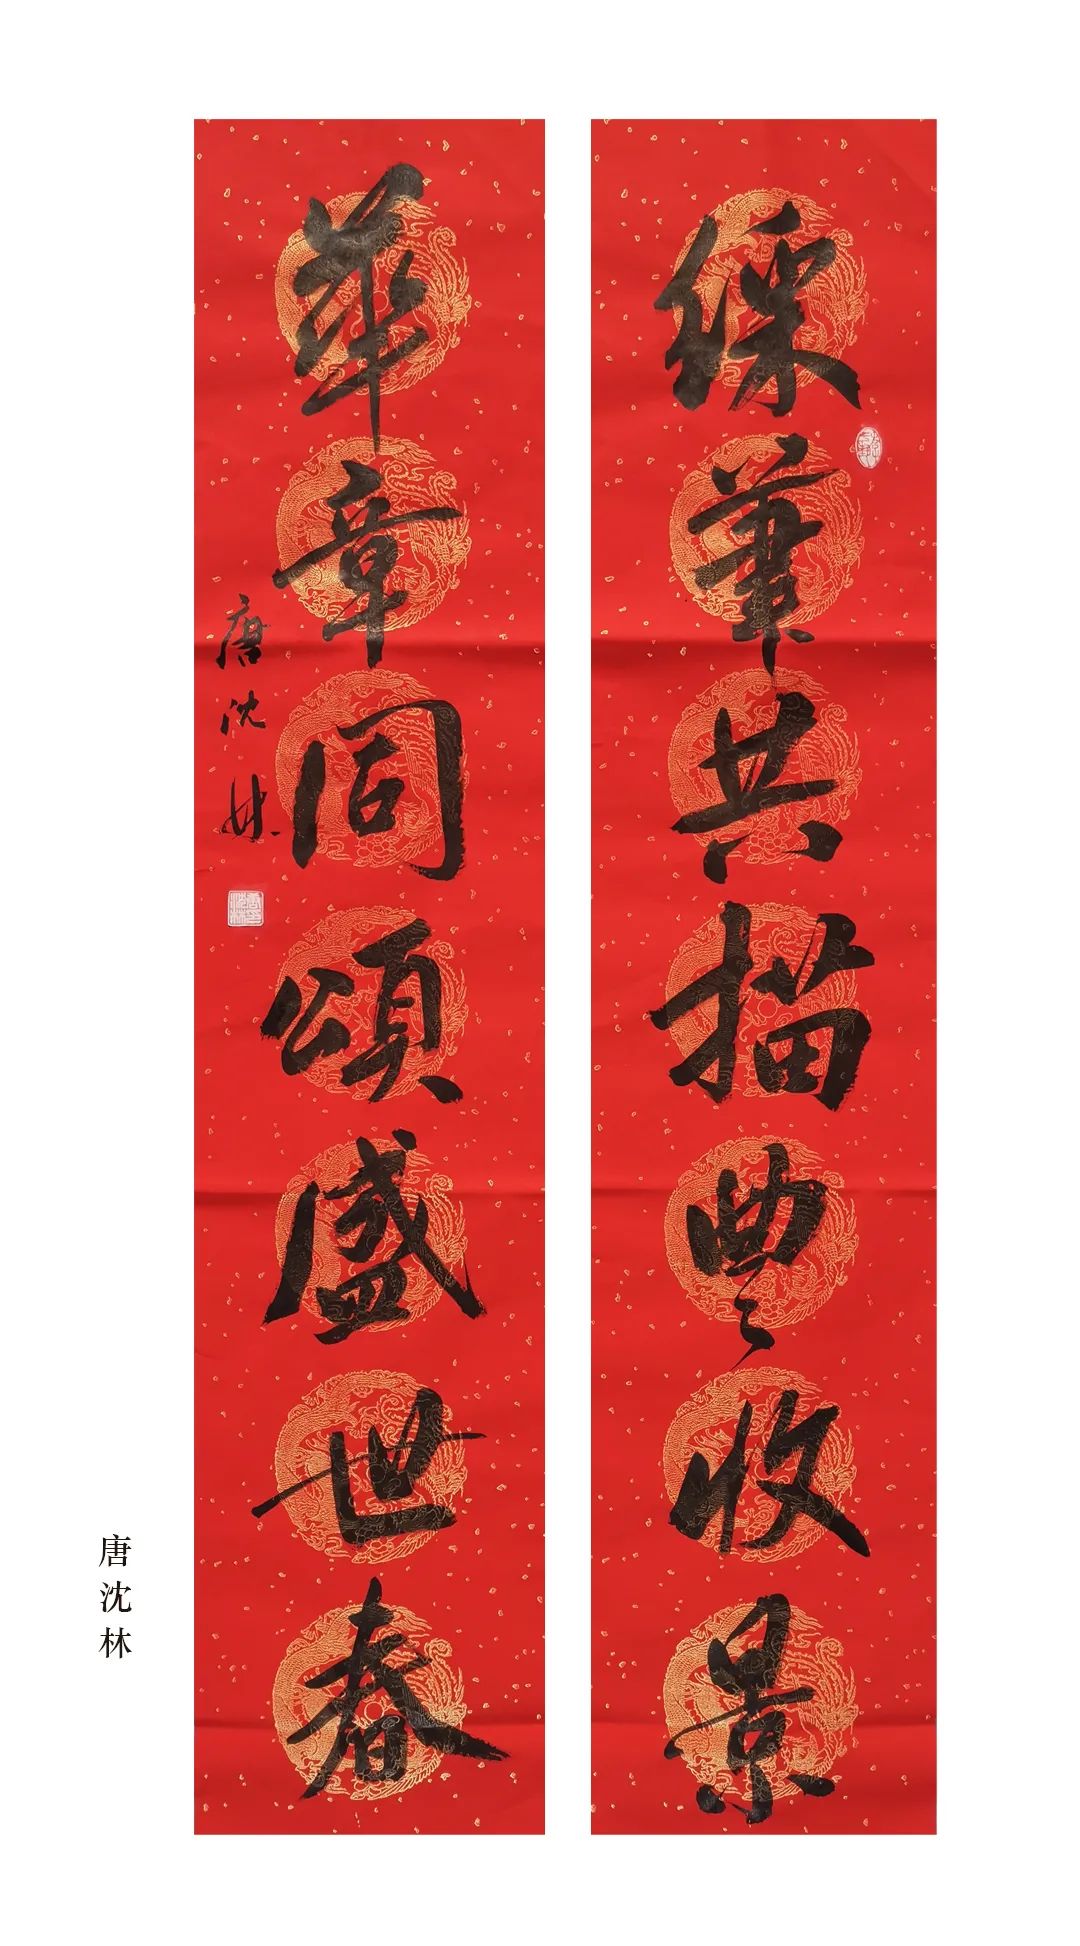 綵筆共描豐收景
華章同頌盛世春
唐沈林
唐沈林